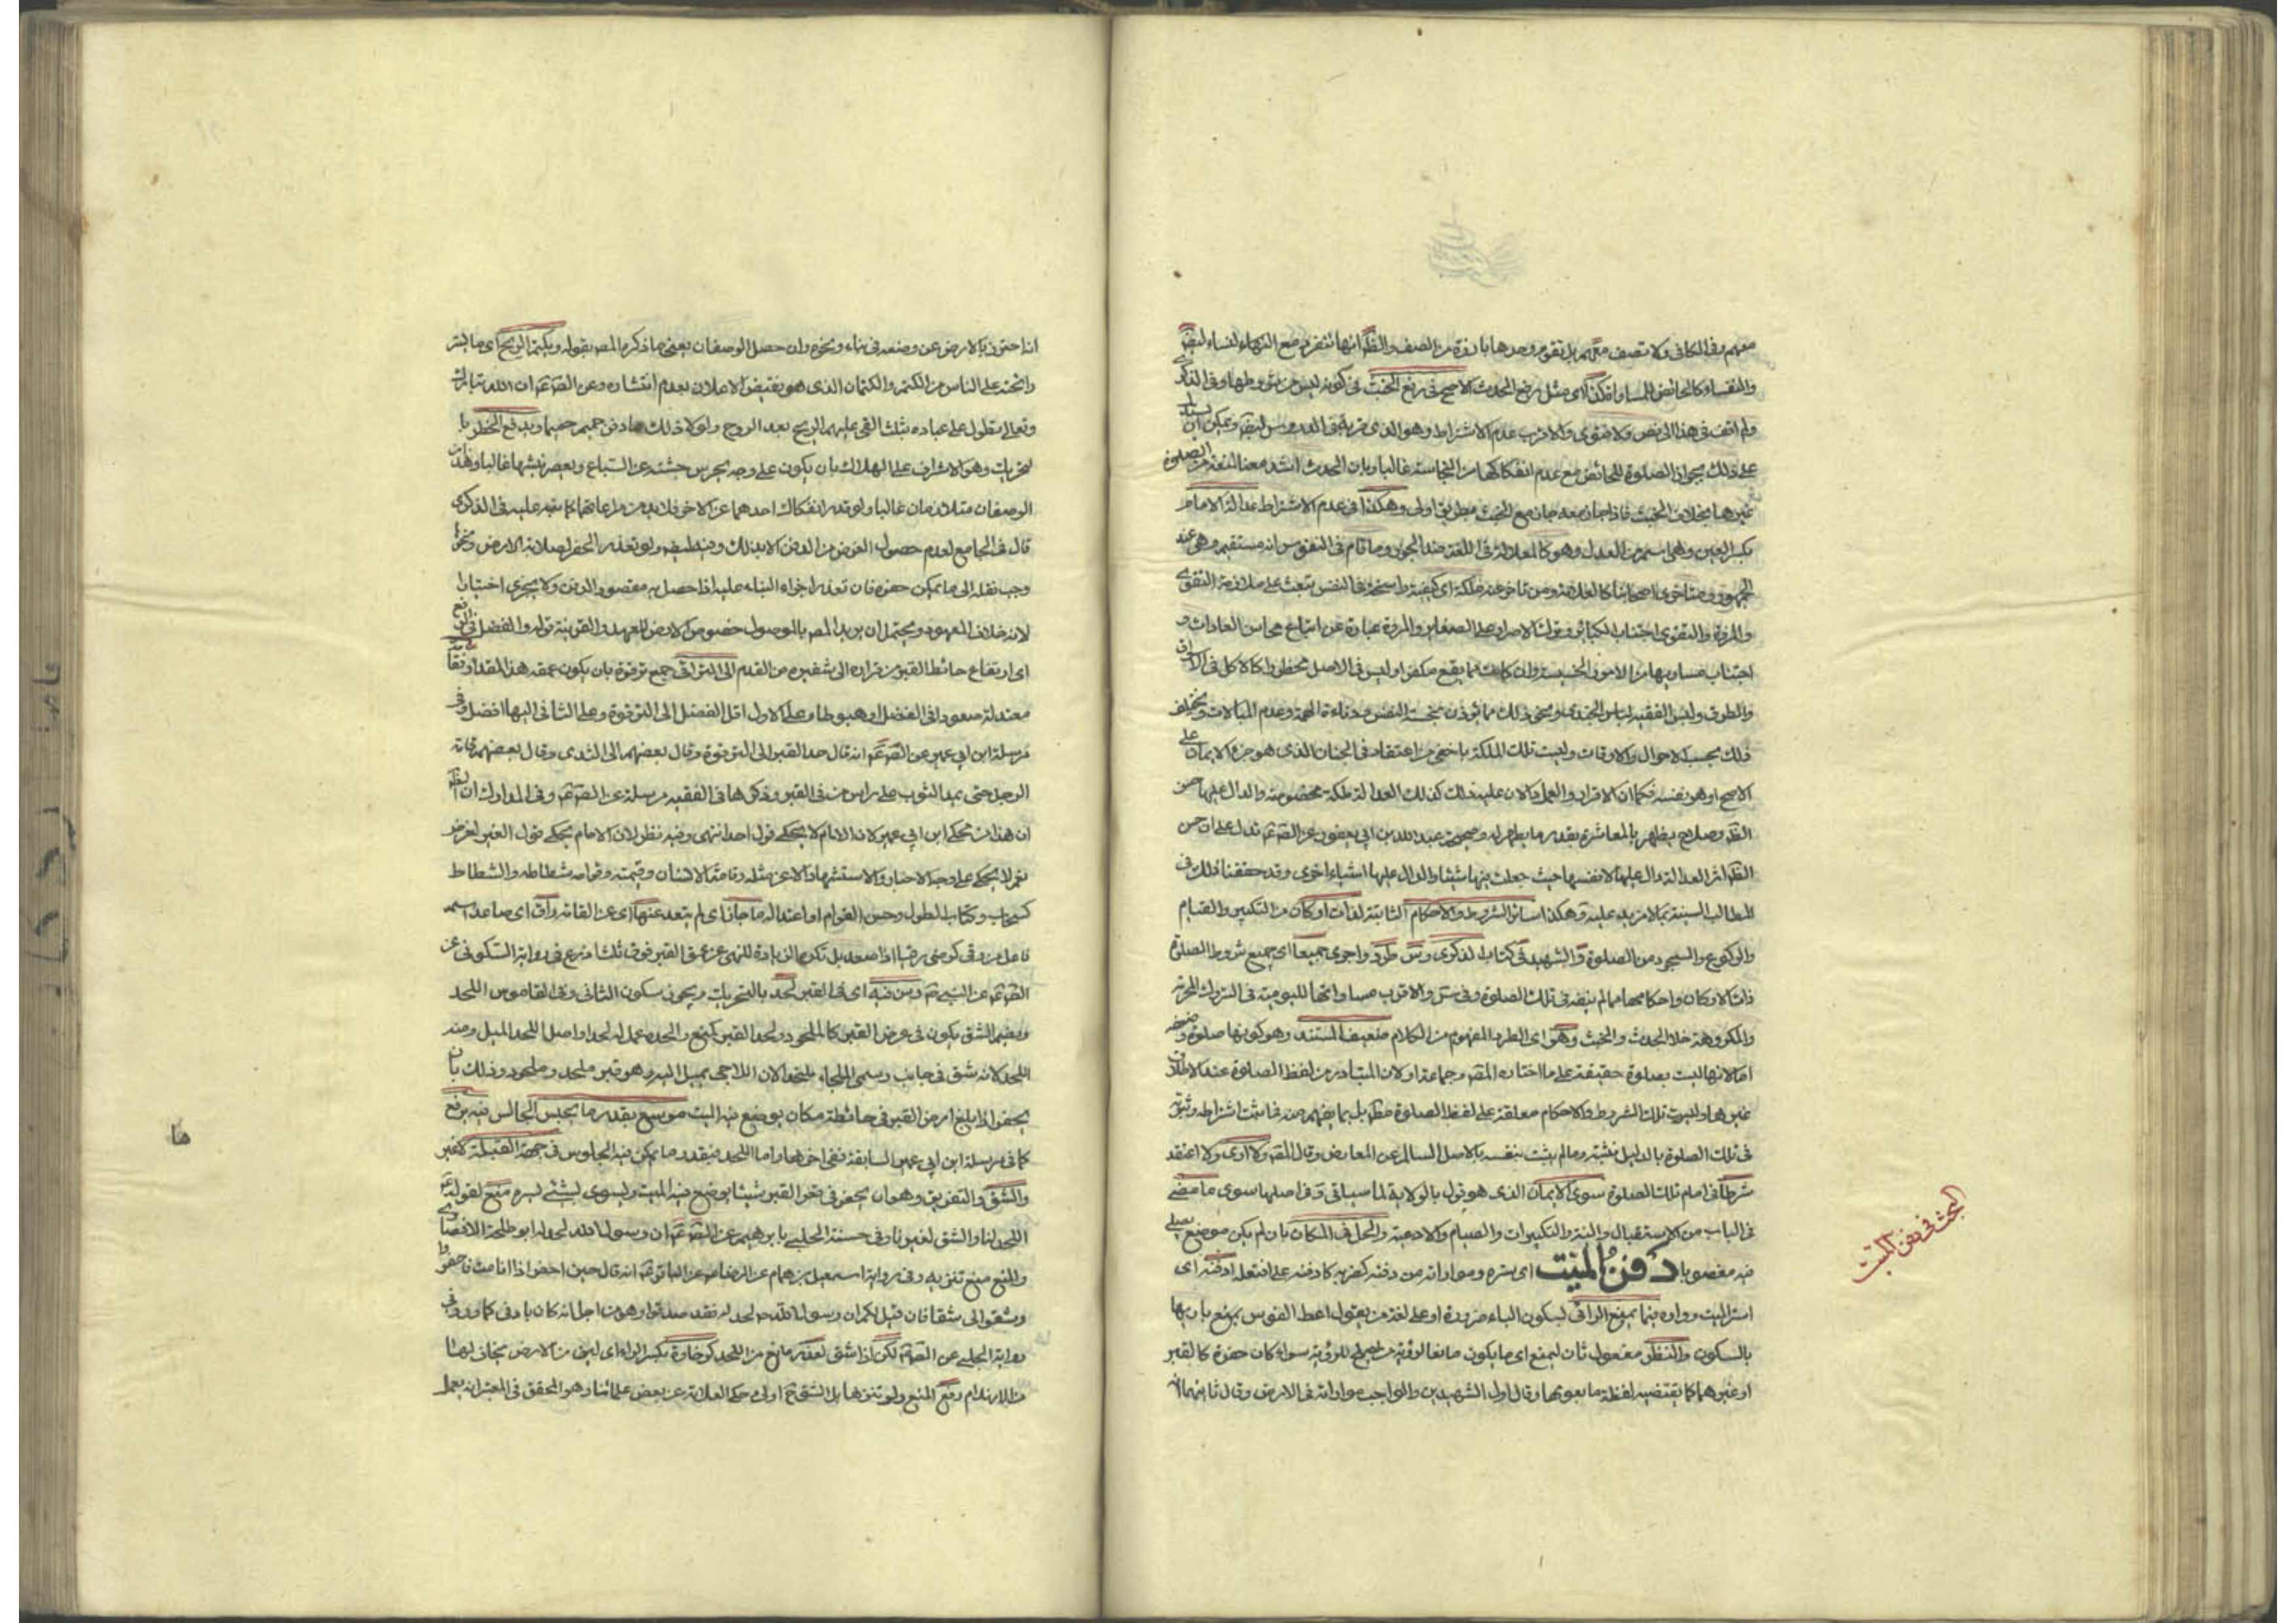 معهم وفي الكافي ولا تصف معهم بل تقوم وحدها بارزة من الصف والظ انها تنفرد مع النساء
والنفساء كالحائض للمساواة وكذا اي مثل رفع الحدث الاصح في رفع الخبث في كونه ليس من شروطها وفي الذكرى
ولم اقف في هذا الى نص ولا فتوى والاقرب عدم الاشتراط وهو الذي في الدروس ويمكن ان يستدل
على ذلك بجواز الصلوة للحائض مع عدم انفكاكها من النجاسة غالبا وبان الحدث اشد معنا للنفس من الصلوة
غيرها بخلاف الخبث فاذا جاز معه جاز مع الخبث بطريق اولى وهكذا في عدم الاشتراط عدالة الامام
بكسر العين وهي اسم من العدل وهو كالعدالة في اللغة ضد الجور وما قام في النفوس انه مستقيم وهي عند
الجمهور ومتاخري اصحابنا كالعلامة ومن تاخر عنه ملكة اي كيفية راسخة في النفس تبعث على ملازمة التقوى
والمروة والتقوى اجتناب الكبائر وترك الاصرار على الصغاير والمروة عبارة عن اتباع محاسن العادات و
اجتناب مساويها من الامور الخسيسة وان كانت مما يقع مكفرا وليس في الاصل محظورا كالاكل في الاسواق
والطرق ولبس الفقيه لباس الجندي ونحو ذلك مما يؤذن بخسة النفس ودناءة الهمة وعدم المبالات ويختلف
ذلك بحسب الاحوال والاوقات وليست تلك الملكة باخفى من اعتقاد في الجنان الذي هو جزء الايمان على
الاصح او هو نفسه فكما ان الاقرار والعمل دالان عليه فكذلك العدالة ملكة مخصوصة والدال عليها حسن
الظ وصلاح يظهر بالمعاشرة بقدر ما يظهر له وصحيحة عبد الله بن ابي يعفور عن الص ع تدل على ان حسن
الظ اثر العدالة دال عليها لا نفسها حيث جعلت فيها شيئا والدال عليها اشياء اخرى وقد حققنا ذلك في
المطالب السنية بما لا مزيد عليه وهكذا سائر الشروط والاحكام الثابتة لذات اركان من التكبير والقيام
والركوع والسجود من الصلوة والشهيد في كتاب الذكرى وس طرد واجرى جميعا اي جميع شروط الصلوة
ذات الاركان واحكامها مما لم ينفه في تلك الصلوة وفي س والاقرب مساواتها لليومية في التروك المحرمة
والمكروهة خلا الحدث والخبث وهو اي الطرد المفهوم من الكلام ضعيف المستند وهو كونها صلوة وضعفه
اما لانها ليست بصلوة حقيقة على ما اختاره المص وجماعة او لان المتبادر من لفظ الصلوة عند الاطلاق
غيرها وليست تلك الشروط والاحكام معلقة على لفظ الصلوة مطلقا بل بما يفهم منه فما ثبت اشتراطه وثبوته
في تلك الصلوة بالدليل نثبته وما لم يثبت ننفيه بالاصل السالم عن المعارض وقال المص ولا ارى ولا اعتقد
شرطا في امام تلك الصلوة سوى الايمان الذي هو قول بالولاية لما سياتي وفي اصلها سوى ما مضى
في الباب من الاستقبال والنية والتكبيرات والقيام والادعية والحل في المكان بان لم يكن موضع يصلى
فيه مغصوبا دفن الميت اي ستره ومواراته من دفنه كضربه كادفنه على افتعله اي
استر الميت وواره بما يمنع الرائي بسكون الياء ضرورة او على لغة من يقول اعط القوس باريها
بالسكون والنظر مفعول ثان ليمنع اي ما يكون مانعا لرؤية للرؤية سواء كان حفرة كالقبر
او غيرهما كما يقتضيه لفظة ما بعمومها وقال اول الشهيدين والواجب مواراته في الارض وقال ثانيهما
البحث في دفن الميت
انا احترز بالارض عن وضعه في بناء ونحوه وان حصل الوصفان يعني ما ذكره المص بقوله ويكتم الريح اي ما يستر
رائحته على الناس من الكتم والكتمان الذي هو نقيض الاعلان بعدم انتشاره وعن الص ع ان الله تبارك
وتعالى تطول على عباده بثلث القى عليهم الريح بعد الروح ولولا ذلك ما دفن حميم حميما ويدفع الخطر با
لتحريك وهو الاشراف على الهلاك بان يكون على وجه يحرس جثته عن السباع ويعصر نبشها غالبا وهذان
الوصفان متلازمان غالبا ولو قدر انفكاك احدهما عن الاخر فلابد من مراعاتهما كما نبه عليه في الذكرى
قال في الجامع لعدم حصول الغرض من الدفن الا بذلك وفيه لطيف ولو تعذر الحفر لصلابة الارض ونحوها
وجب نقله الى ما يمكن حفره فان تعذر اجزاء البناء عليه اذا حصل به مقصود الدفن ولا يجزي اختيارا
لانه خلاف المعهود ويحتمل ان يريد المص بالوصول خصوص الارض للعهد والقرينة قوله والفضل في الرفع
اي ارتفاع حائط القبر من قراره الى شفيره من القدم الى التراقي جميع ترقوة بان يكون عمقه هذا المقدار
معتدلة صعودا في الفضل او هبوطا وعلى الاول اقل الفضل الى الترقوة وعلى الثاني اليها افضل وفي
مرسلة ابن ابي عمير عن الص ع انه قال حد القبر الى الترقوة وقال بعضهم الى الثدي وقال بعضهم قامة
الرجل حتى يمد الثوب على راس من في القبر وذكرها في الفقيه مرسلة عن الص ع وفي المدارك ان الظ
ان هذا من محكي ابن ابي عمير لان الامام لا يحكي قول احد انتهى وفيه نظر لان الامام يحكي قول الغير لغرض
نعم لا يحكي على وجه الاخبار والاستشهاد الا عن مثله وقامة الانسان وقيمته وقوامه شطاطه والشطاط
كسحاب وكتاب الطول وحسن القوام او اعتداله ما جازنا اي لم يتعد عنها اي عن القامة راق اي صاعد اسم
فاعل من رقى كرضي رقيا اذا صعد بل تكره الزيادة للنهي عن عمق القبر فوق ثلث اذرع في رواية السكوني عن
الص ع عن النبي ص ومن فيه اي في القبر لحد بالتحريك ويجوز سكون الثاني وفي القاموس اللحد
ويضم الشق يكون في عرض القبر كالملحود ولحد القبر كمنع والحده عمل له لحدا واصل اللحد الميل ومنه
اللحد لانه شق في جانب وسمي الملجاء ملتحدا لان اللاجي يميل اليه وهو قبر ملحد وملحود وذلك بان
يحفر اذا بلغ ارض القبر في حائطه مكان يوضع فيه الميت موسع بقدر ما يجلس الجالس فيه برفع
كما في مرسلة ابن ابي عمير السابقة ففي اخرها واما اللحد فبقدر ما يمكن فيه الجلوس في جهة القبلة
والشق والتفريق وهو ان يحفر في قعر القبر شيئا يوضع فيه الميت ويسوى بشيء منع لقوله ع
اللحد لنا والشق لغيرنا وفي حسنة الحلبي بابرهيم عن الص ع ان رسول الله لحد له ابو طلحة الانصاري
والمنع منع تنزيه وفي رواية اسمعيل بن همام عن الرضا ع عن الباقر ع انه قال حين احضر اذا انا مت فاحفروا
وشقوا لي شقا فان قيل لكم ان رسول الله ص لحد له فقد صدقوا وهو من اجل انه كان بادنا كما ورد في
رواية الحلبي عن الص ع لكن اذا شق لعذر مانع من اللحد كرخاوة بكسر الراء اي لين من الارض يخاف لهذا
من الانهدام رفع المنع ولو تنزها بل الشق ح اولى وحكى العلامة عن بعض علمائنا وهو المحقق في المعتبر انه يعمل
ها